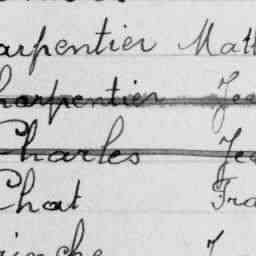 arpentier Matt
harpentier Jea
Charles Jea
Chat Fra